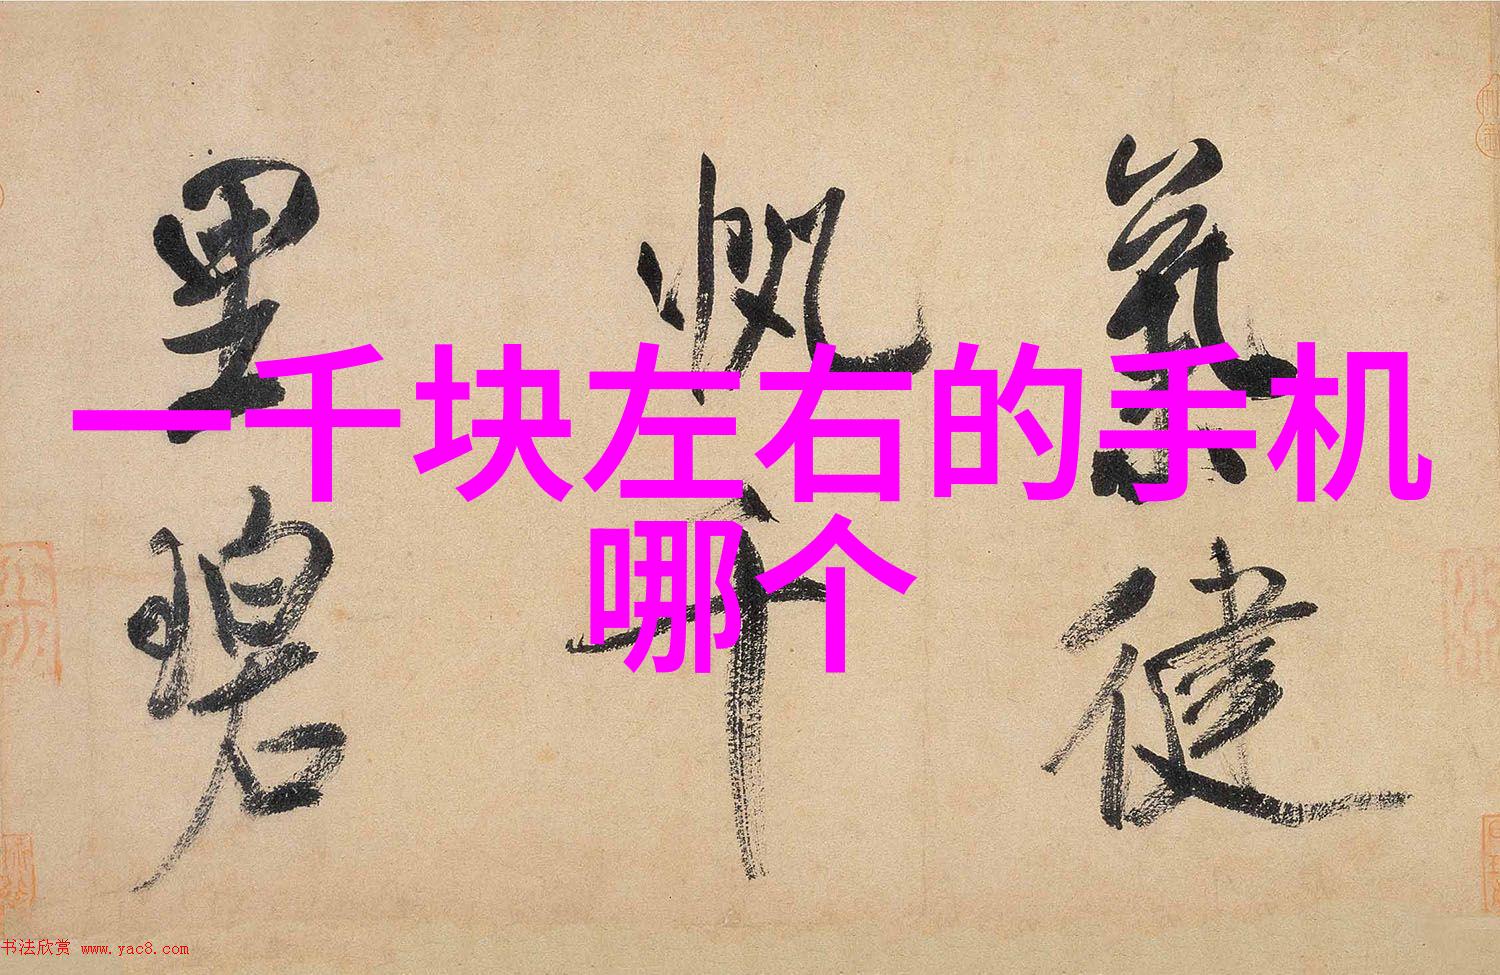 一千块左右的手机
哪个
葉健
帆十
里碧
书法欣赏 www.yac8.com